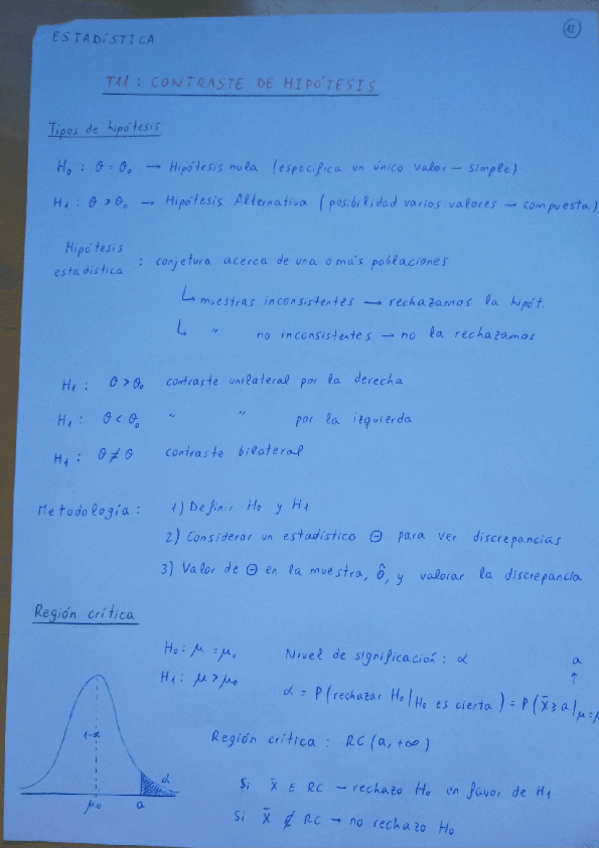 ESTADÍSTICA
12
T11: CONTRASTE DE HIPÓTESIS
Tipos de hipótesis
H₀ : θ = θ₀ → Hipótesis nula (especifica un único valor – simple)
H₁ : θ > θ₀ → Hipótesis Alternativa (posibilidad varios valores – compuesta)
Hipótesis estadística : conjetura acerca de una o más poblaciones
↳ muestras inconsistentes → rechazamos la hipót.
↳ " no inconsistentes → no la rechazamos
H₁ : θ > θ₀ contraste unilateral por la derecha
H₁ : θ < θ₀ " " por la izquierda
H₁ : θ ≠ θ contraste bilateral
Metodología : 1) Definir H₀ y H₁
2) Considerar un estadístico Θ para ver discrepancias
3) Valor de Θ en la muestra, θ̂, y valorar la discrepancia
Región crítica
H₀ : μ = μ₀ Nivel de significación : α
H₁ : μ > μ₀
a
↑
α = P(rechazar H₀ | H₀ es cierta) = P(x̄ ≥ a |μ=μ
Región crítica : RC (a, +∞)
Si x̄ ∈ RC → rechazo H₀ en favor de H₁
Si x̄ ∉ RC → no rechazo H₀
1-α
α
μ₀ a